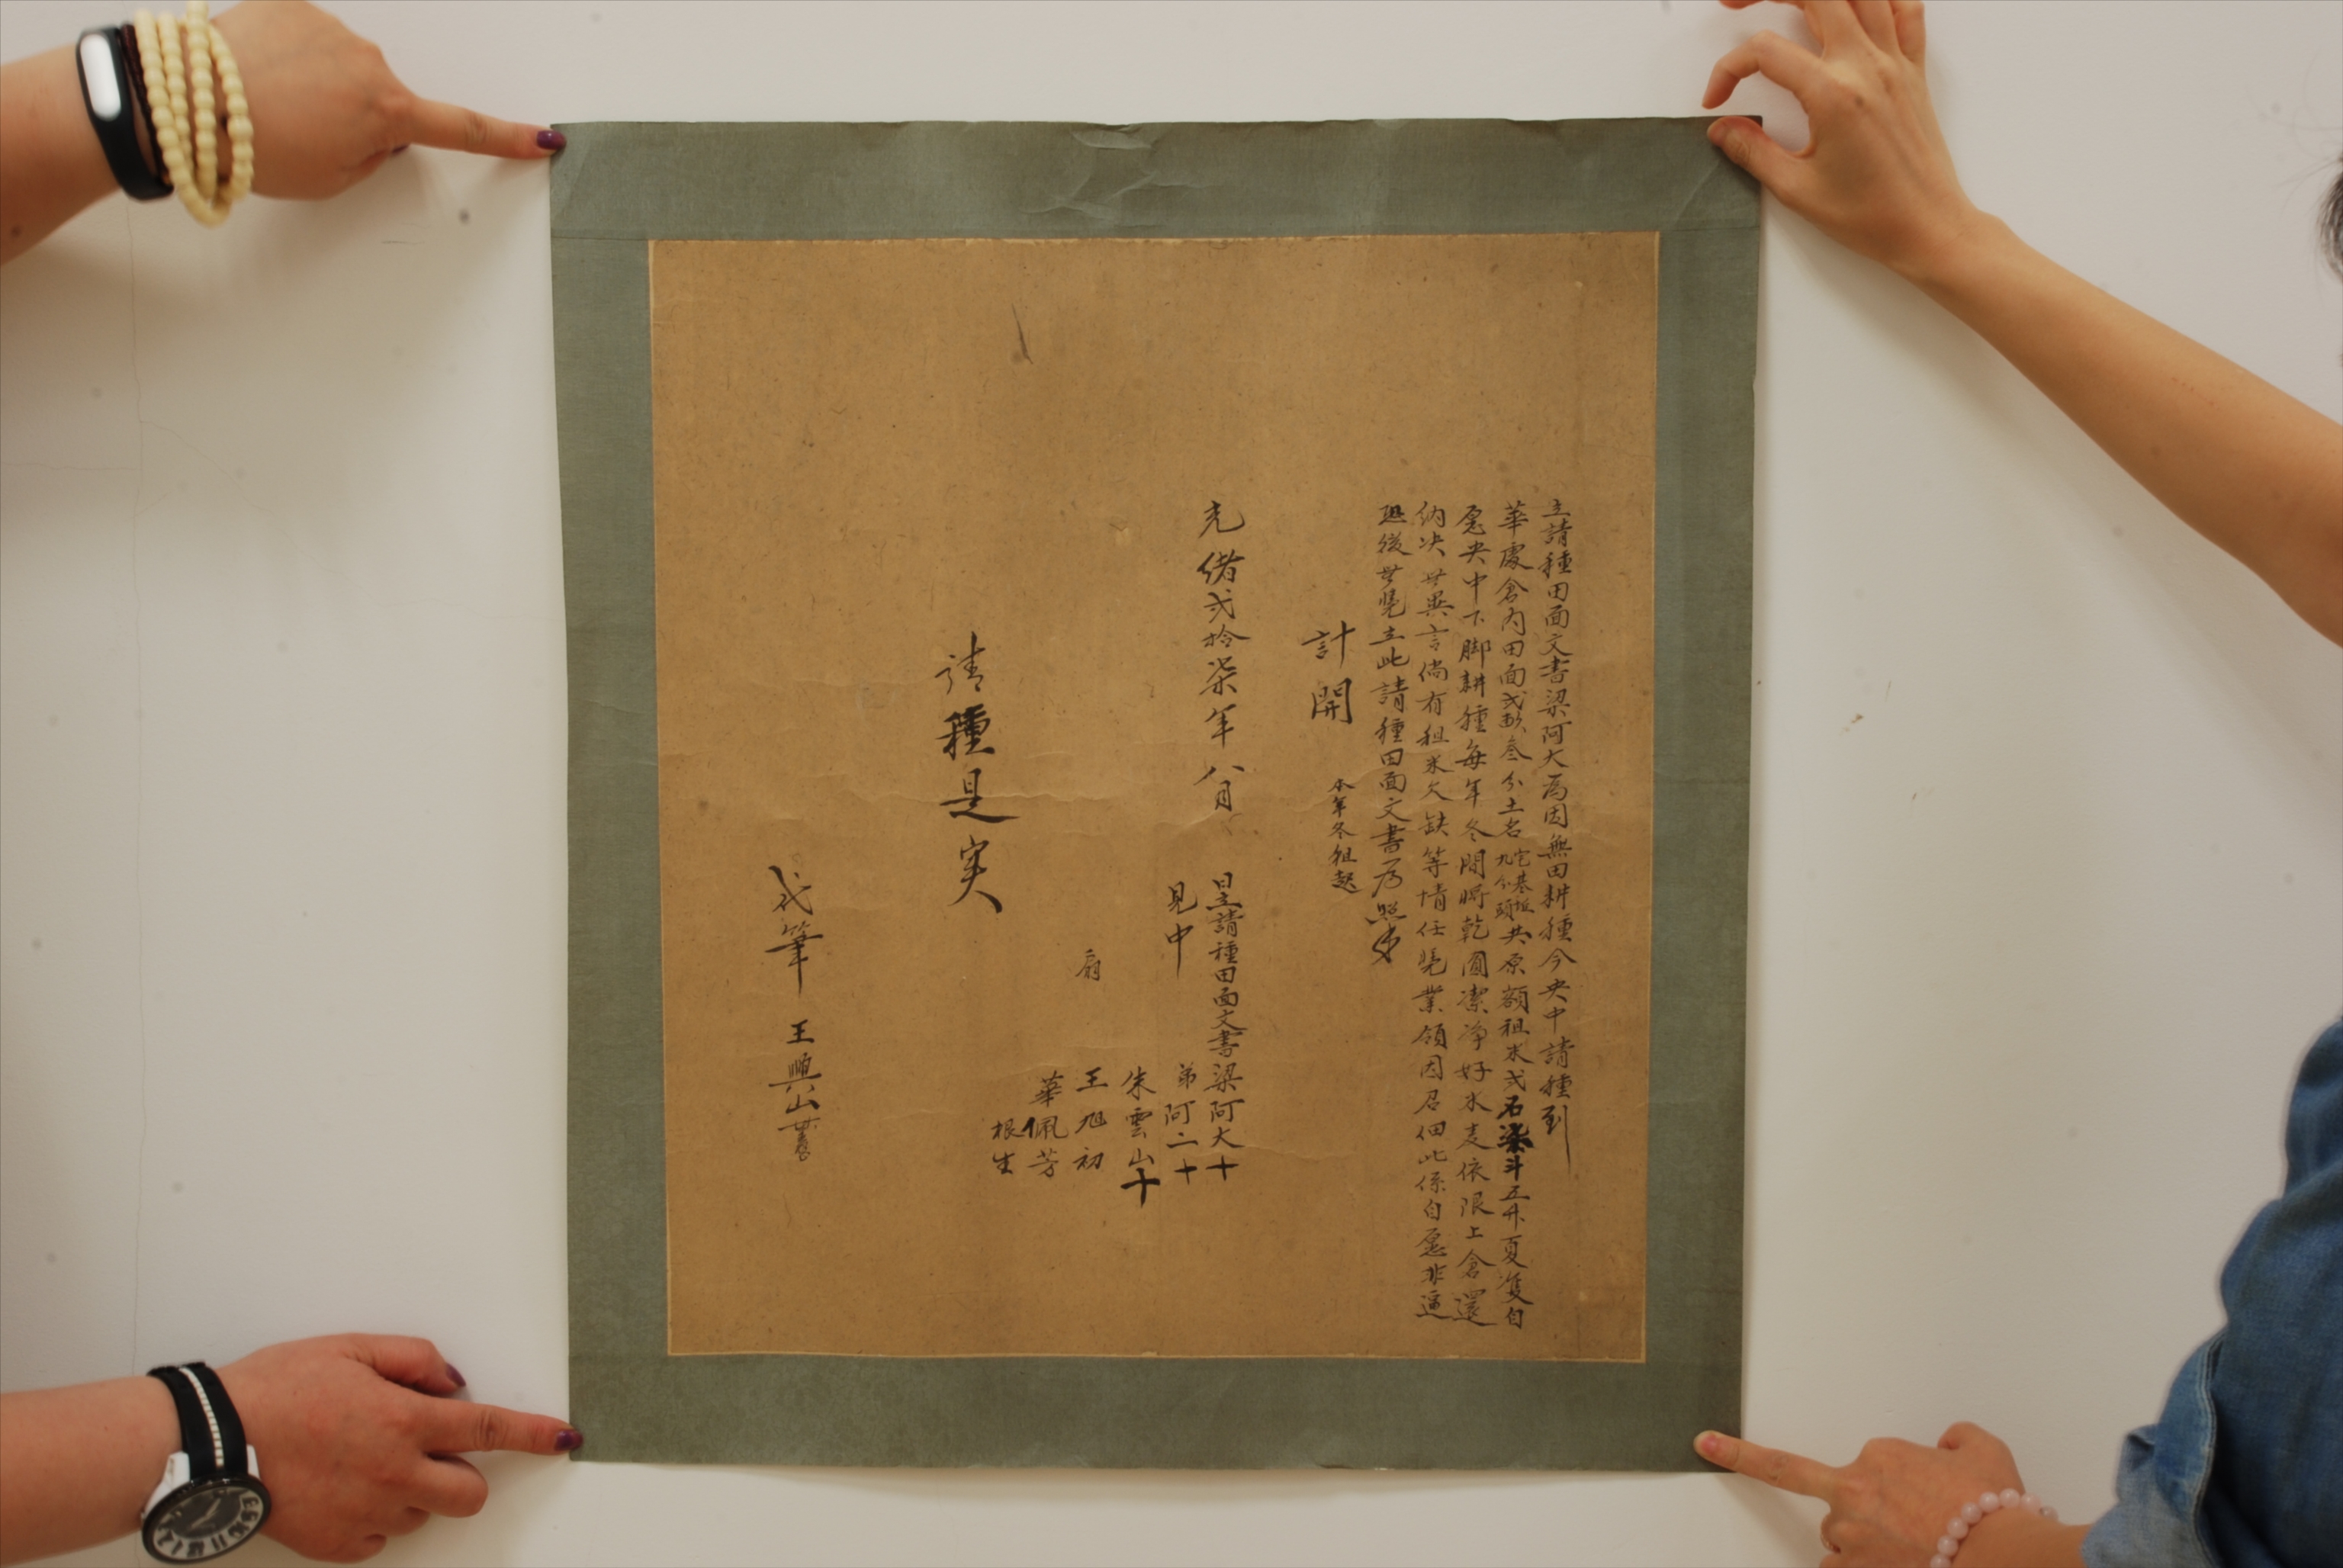 立請種田面文書梁阿大為因無田耕種今央中請種到
華處倉內田面弍畝叁分土名
宅基坵
九分頭
共原額租米弍石柒斗五升夏隻自
愿央中下脚耕種每年冬間將乾圓潔净好米麦依限上倉還
納决無異言倘有租米欠缺等情任凴業領因召佃此係自愿非逼
恐後無凴立此請種田面文書為照
計開
本年冬租起
光緒弍拾柒年八月
日立請種田面文書梁阿大十
弟阿二十
見中
朱雲山十
王旭初
華佩芳
根生
請種是实
代筆 王興山書